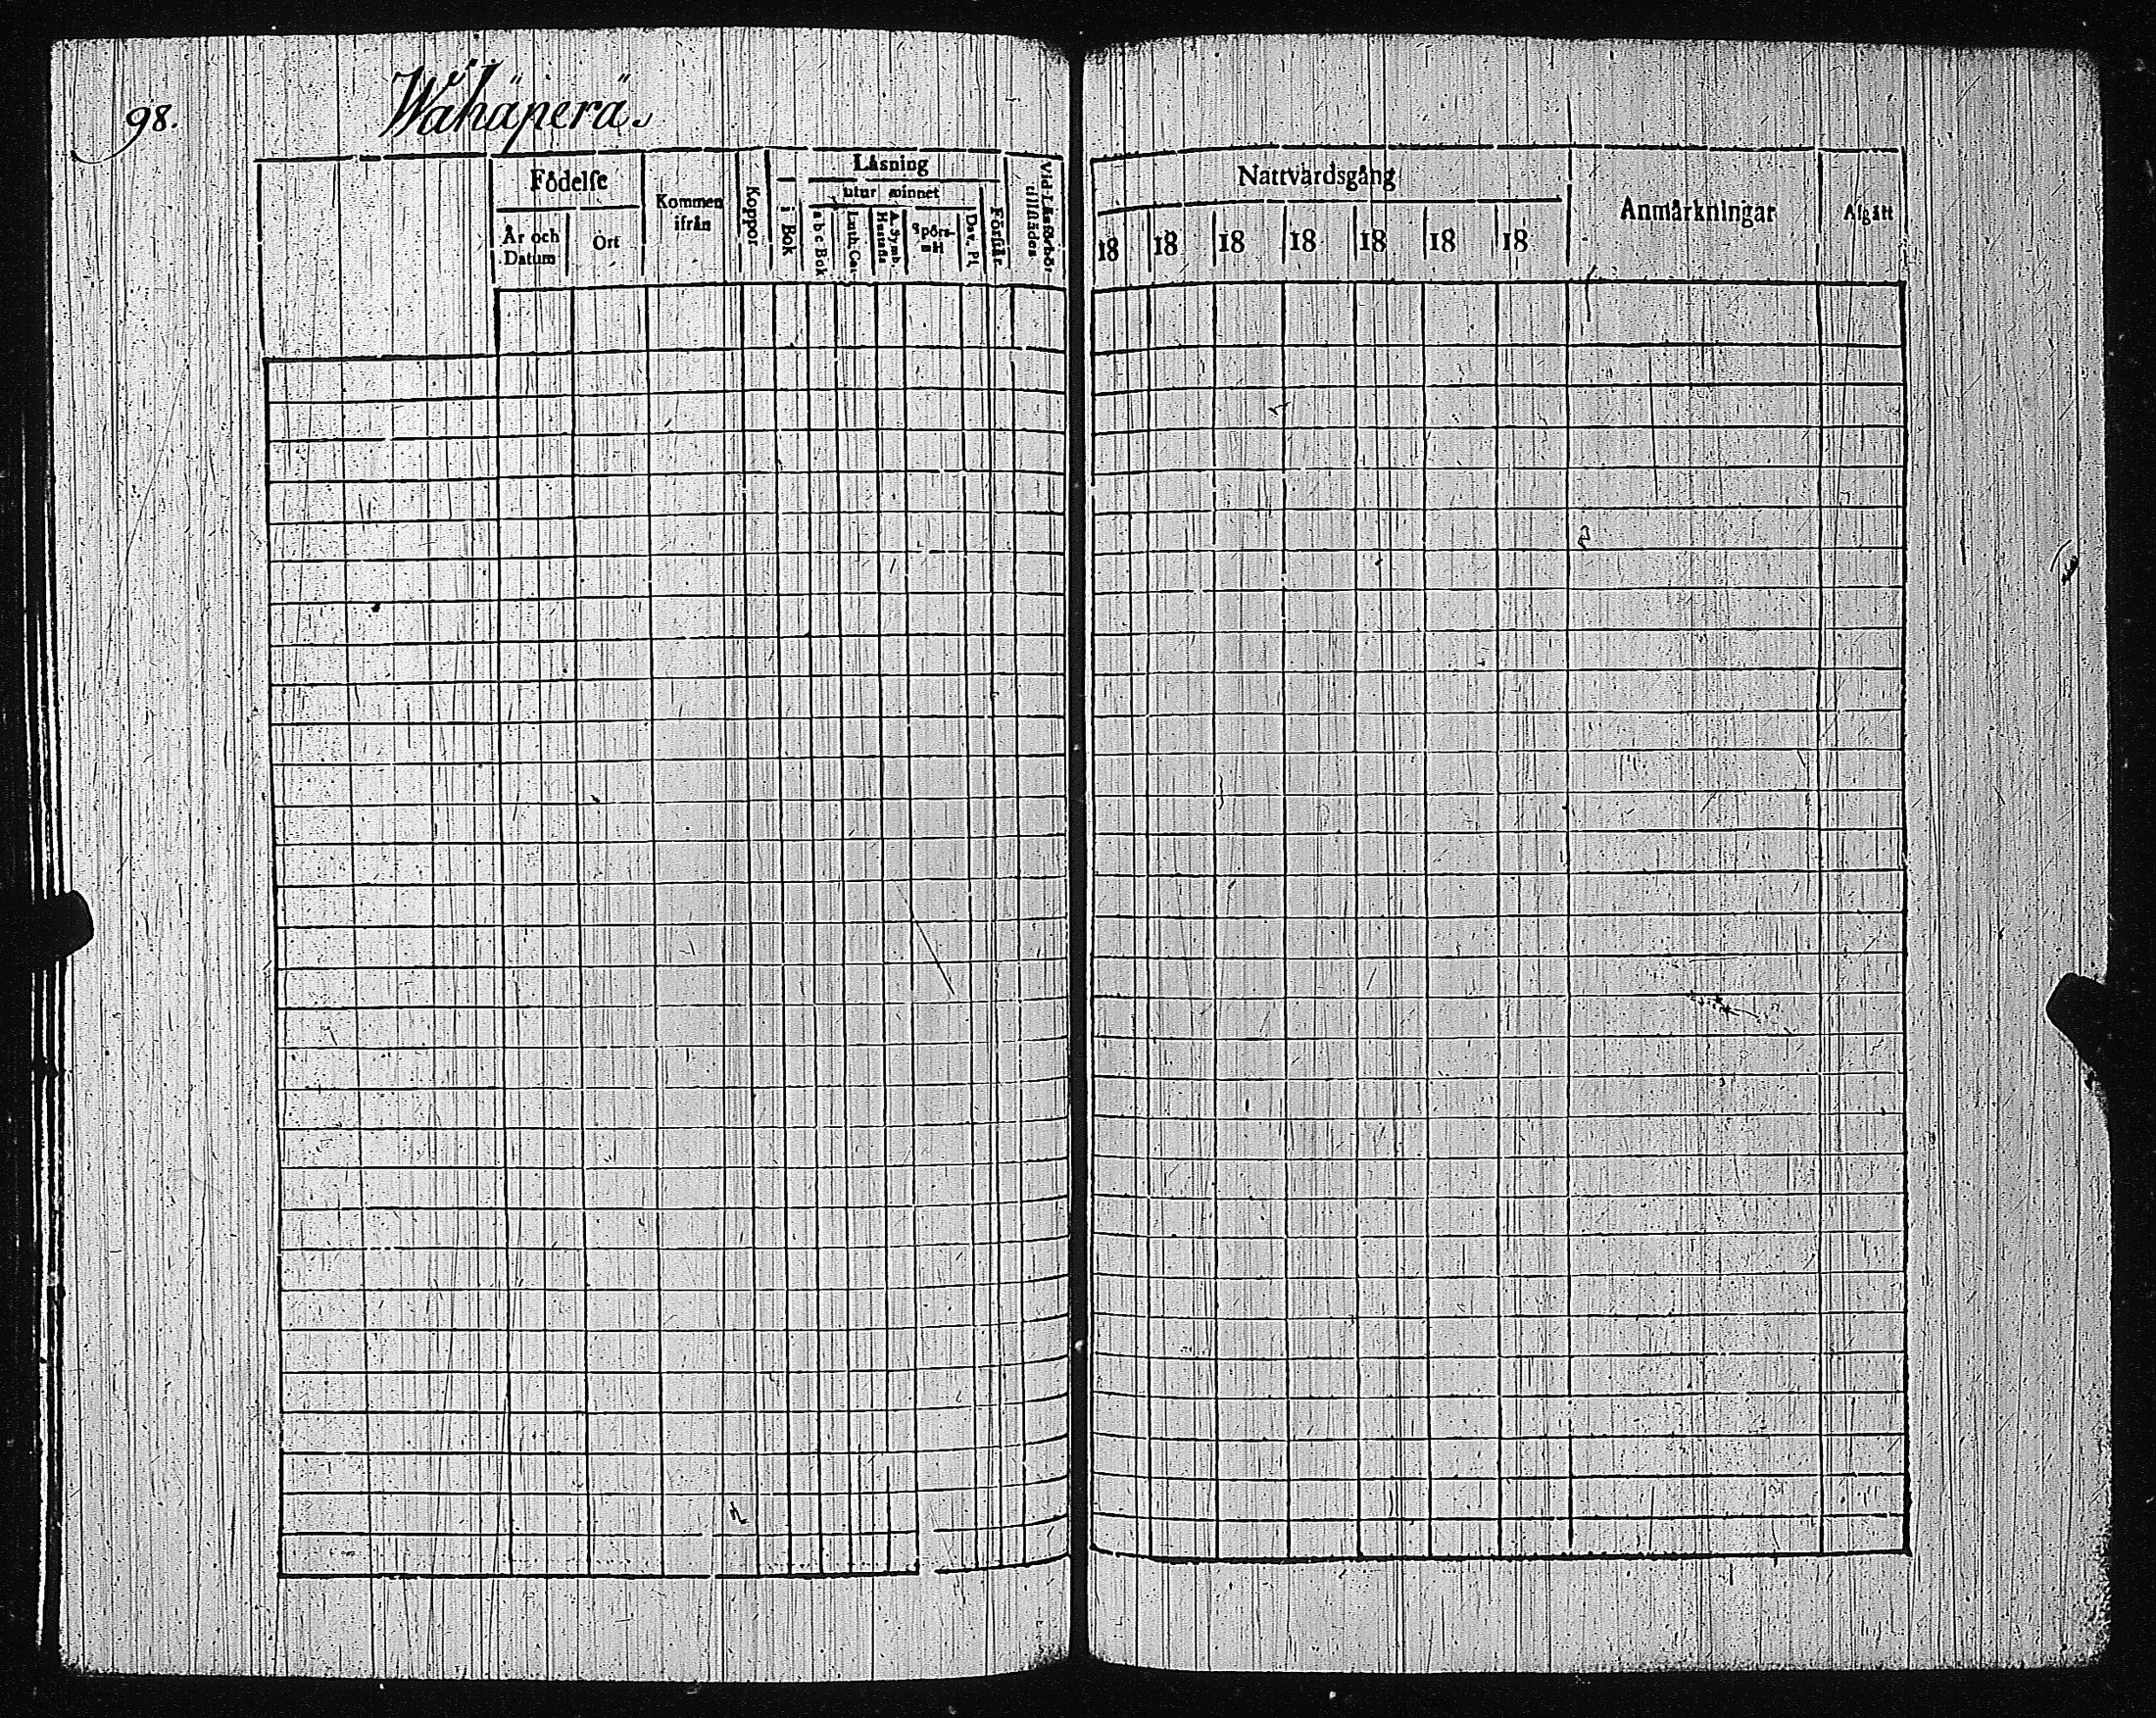 98.
Wähäperä.
Födelse
År och Datum
Ort
Kommen ifrån
Koppor
Läsning
i Bok
utur minnet
a b c Bok
Luth. Cat.
A. Symb.
Hustafla
Spörs-mål
Dav. Ps.
Förstår
Vid Läseförhör tillstädes
Nattvardsgång
18 18 18 18 18 18 18
Anmärkningar
Afgått